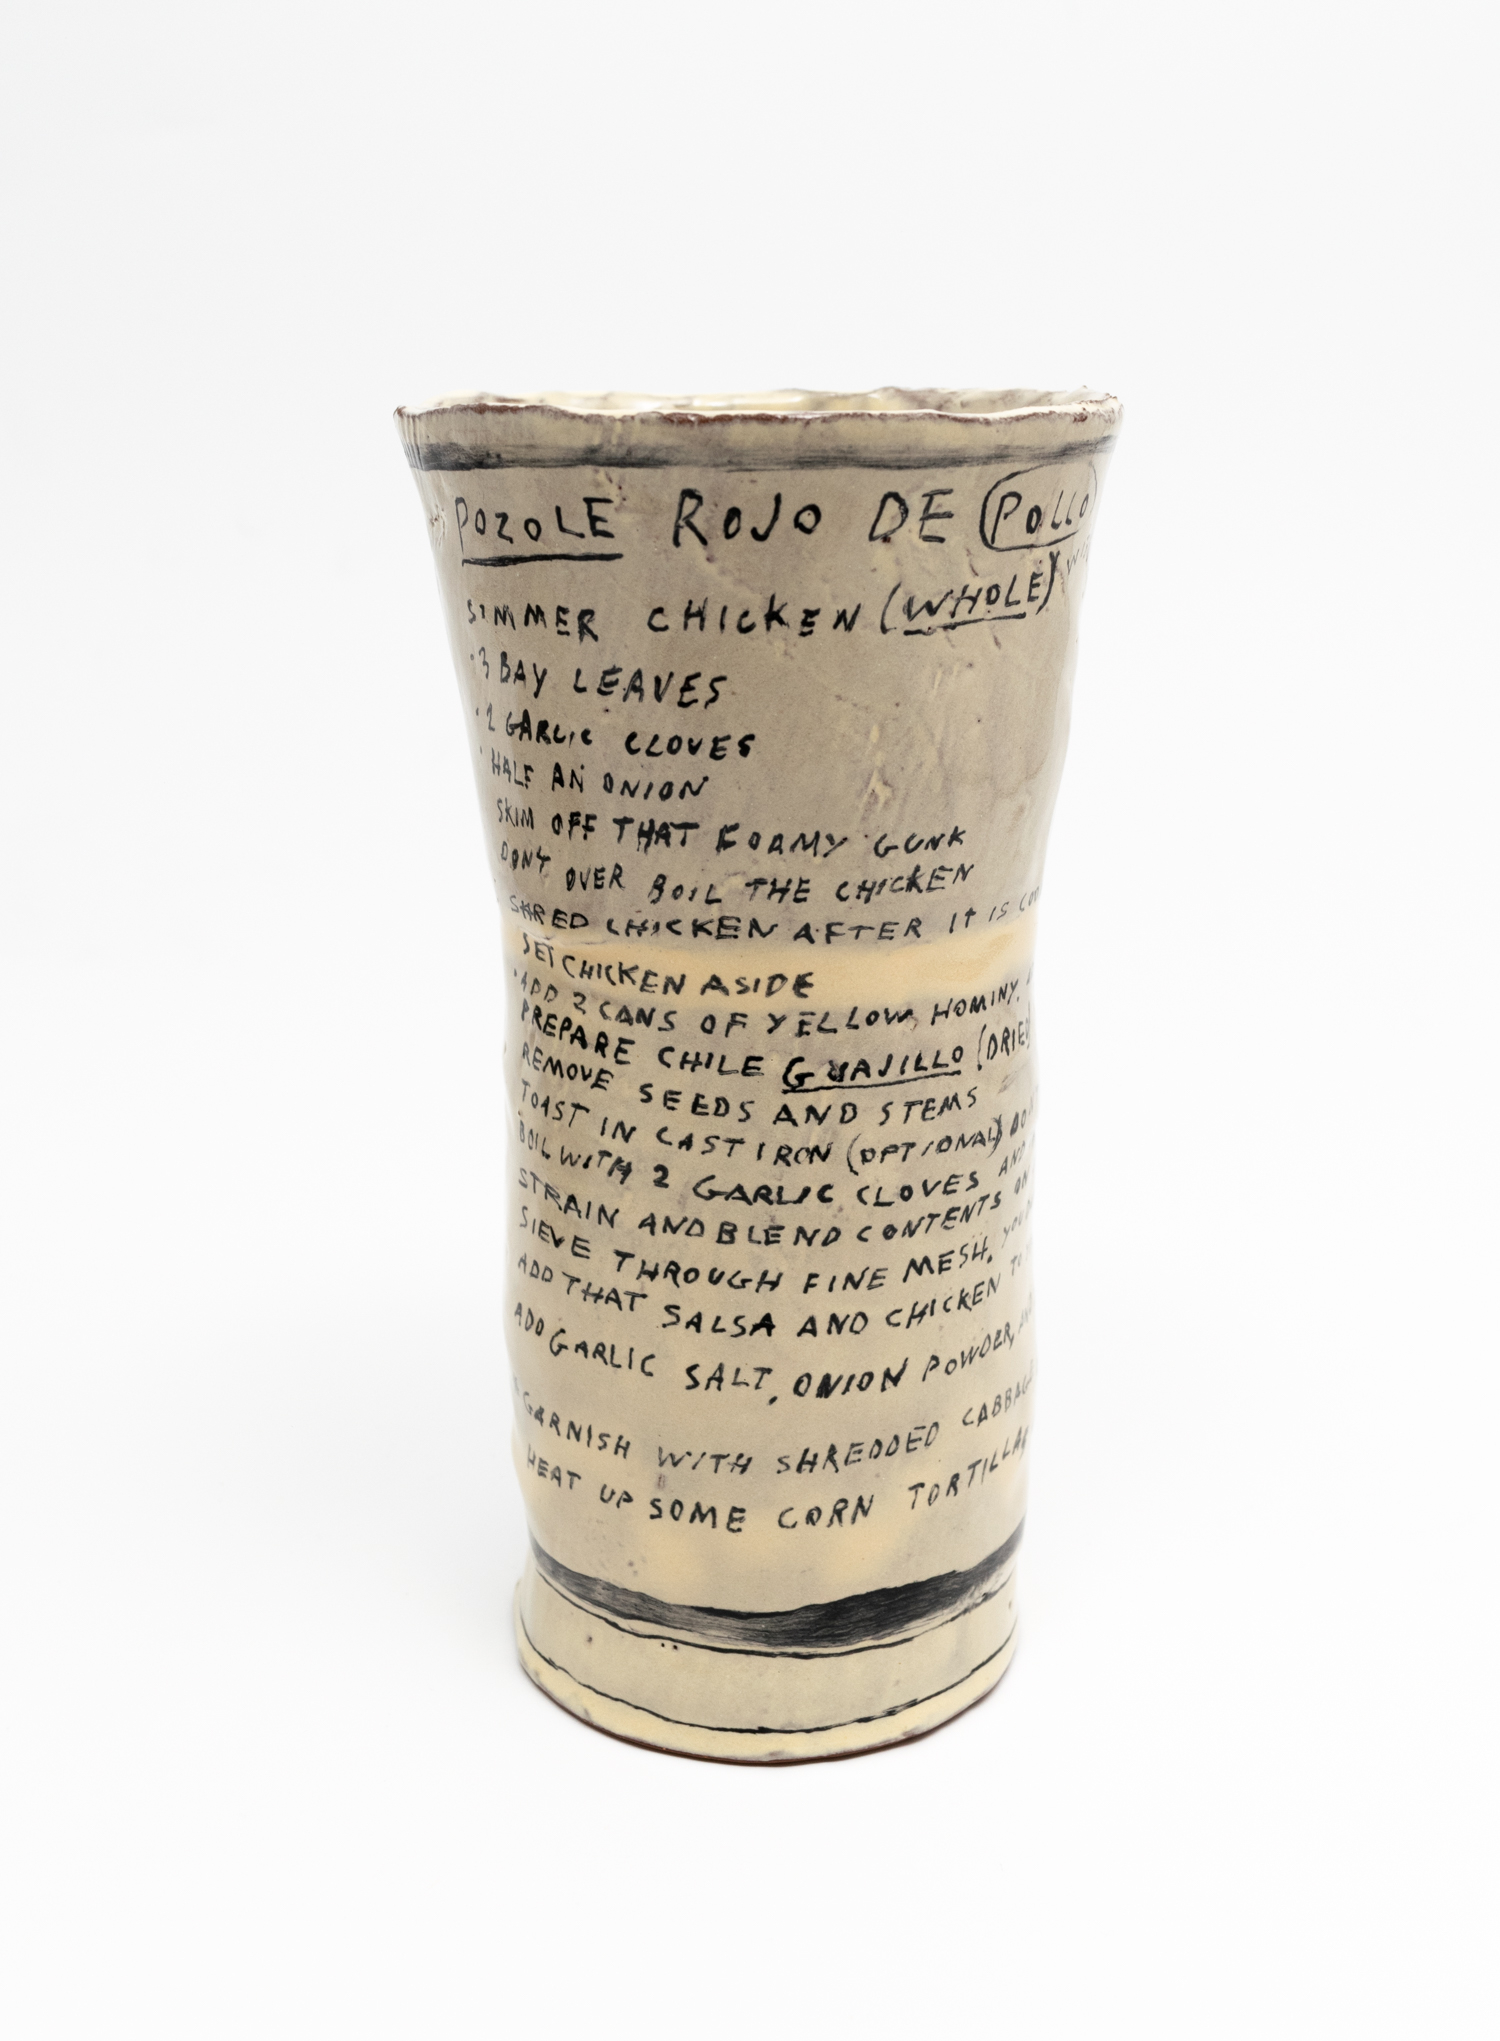 POZOLE ROJO DE POLLO
SIMMER CHICKEN (WHOLE)
· 3 BAY LEAVES
· 2 GARLIC CLOVES
· HALF AN ONION
SKIM OFF THAT FOAMY GUNK
DON'T OVER BOIL THE CHICKEN
SHRED CHICKEN AFTER IT IS
SET CHICKEN ASIDE
· ADD 2 CANS OF YELLOW HOMINY.
PREPARE CHILE GUAJILLO (DRIED
REMOVE SEEDS AND STEMS
TOAST IN CAST IRON (OPTIONAL)
BOIL WITH 2 GARLIC CLOVES AND
STRAIN AND BLEND CONTENTS ON
SIEVE THROUGH FINE MESH.
ADD THAT SALSA AND CHICKEN TO
ADD GARLIC SALT, ONION POWDER,
GARNISH WITH SHREDDED CABBAGE
HEAT UP SOME CORN TORTILLAS